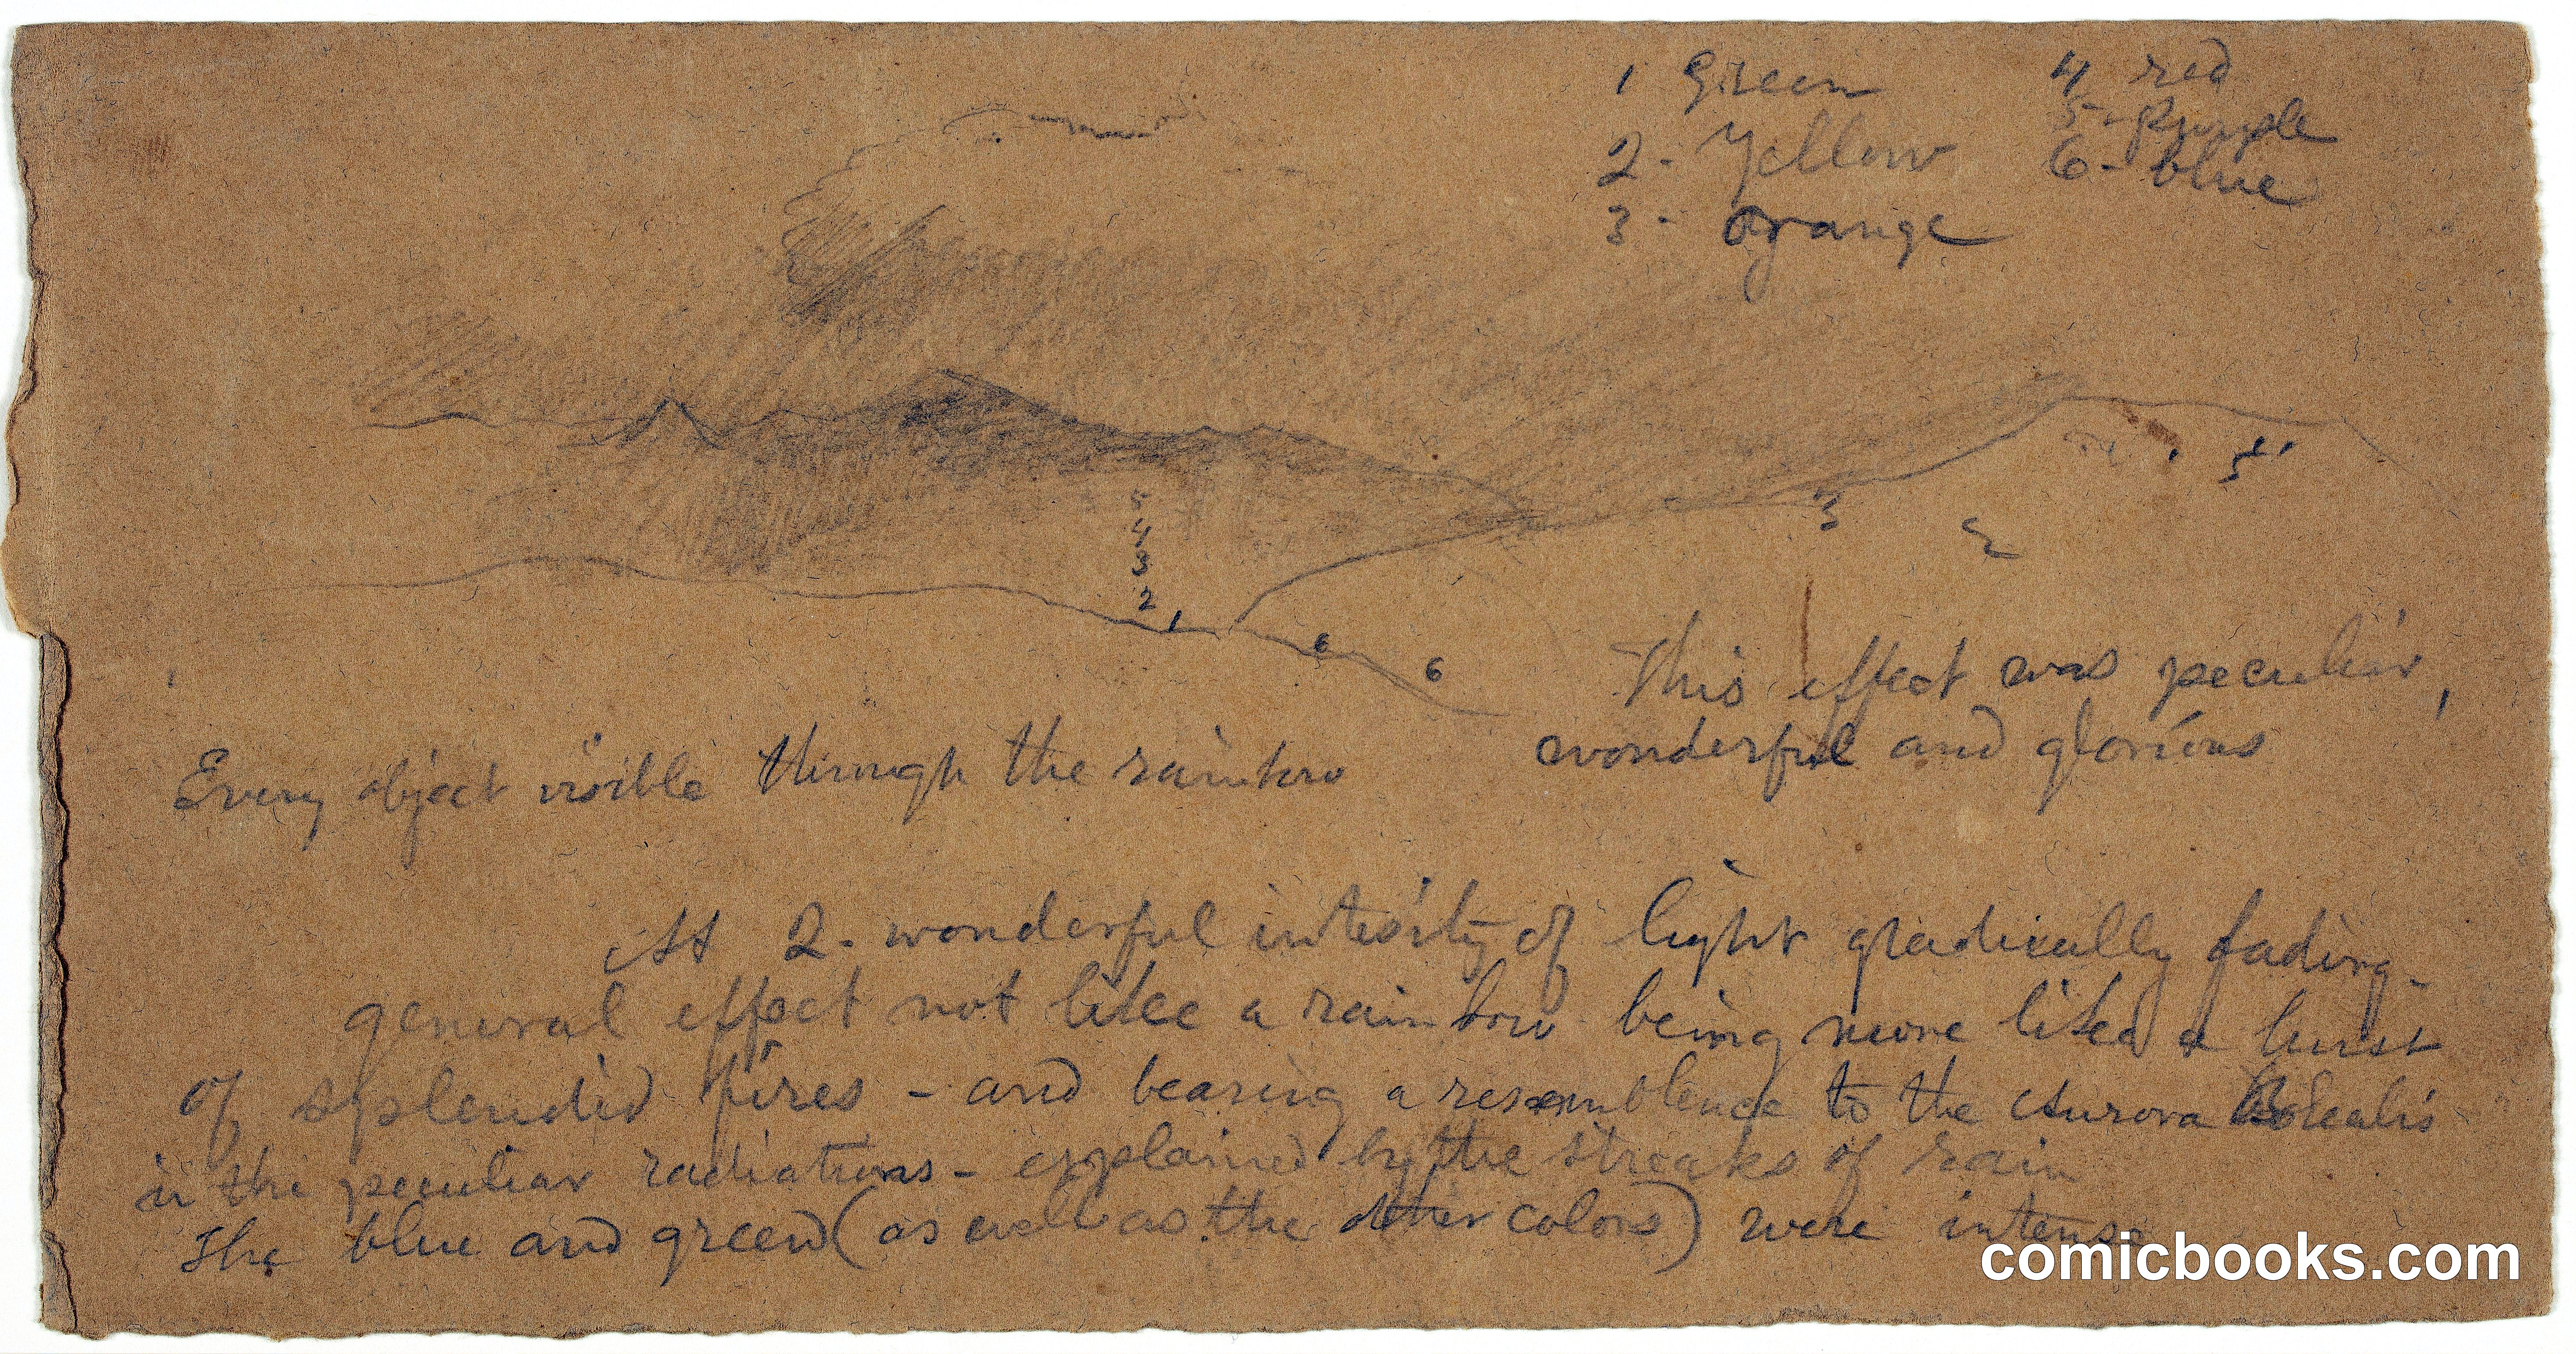 1 Green
2 - Yellow
3 - Orange
4 red
5 - Purple
6 - blue
5
4
3
2
1
6
6
3
2
1
5
This effect was peculiar,
wonderful and glorious
Every object visible through the rainbow
At 2 - wonderful intesity of light gradually fading -
general effect not like a rainbow being more like a burst
of splendid fires - and bearing a resemblence to the Aurora Borealis
in the peculiar radiations - explained by the streaks of rain
The blue and green (as well as the other colors) were intense
comicbooks.com